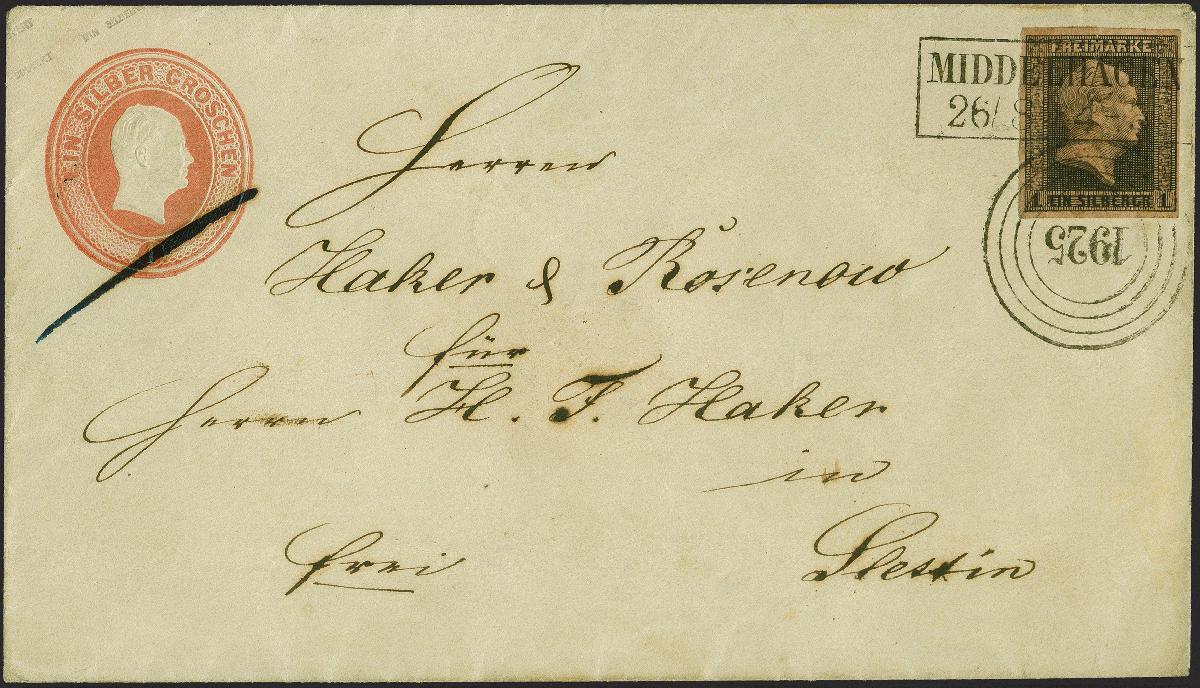 EIN SILBER GROSCHEN
FREIMARKE
1 EIN SILBERGR 1
26/8
1925
Herren
Haker & Rosenow
für
Herrn H. F. Haker
in
frei Stettin